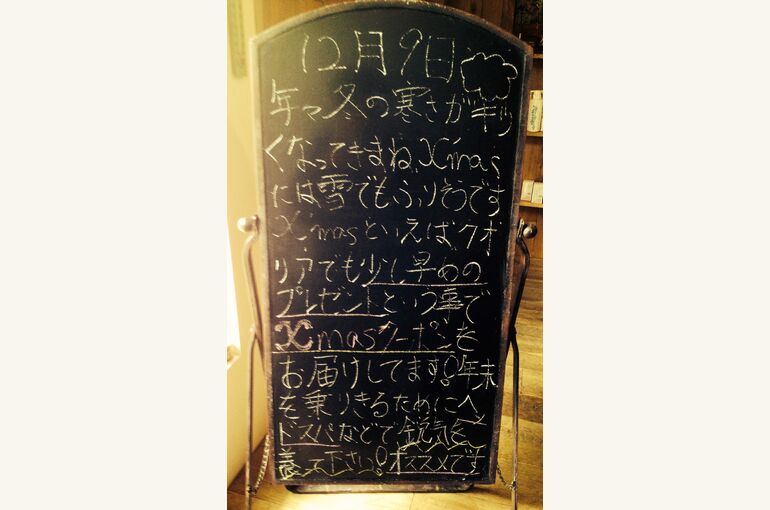 12月9日
年々冬の寒さがキツ
くなってきますね、X'mas
には雪でもふりそうです
X'masといえばクオ
リアでも少し早めの
プレゼントという事で
Xmasクーポンを
お届けしてます!年末
を乗りきるためにヘッ
ドスパなどで鋭気を
養って下さい!オススメです